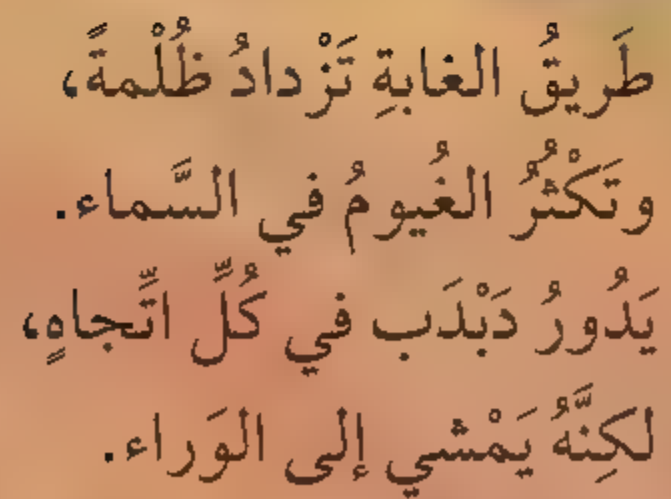 طَريقُ الغابةِ تَزْدادُ ظُلْمةً،
وتَكْثُرُ الغُيومُ في السَّماء.
يَدُورُ دَبْدَب في كُلِّ اتِّجاهٍ،
لكِنَّهُ يَمْشي إلى الوَراء.